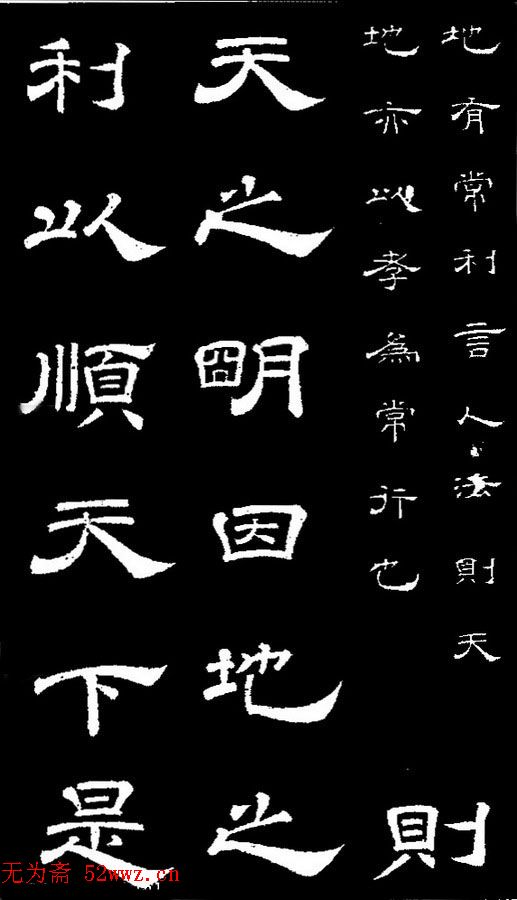 地有常利言人法則天
地亦以孝為常行也
則
天之明因地之
利以順天下是
无为斋 52wwz.cn